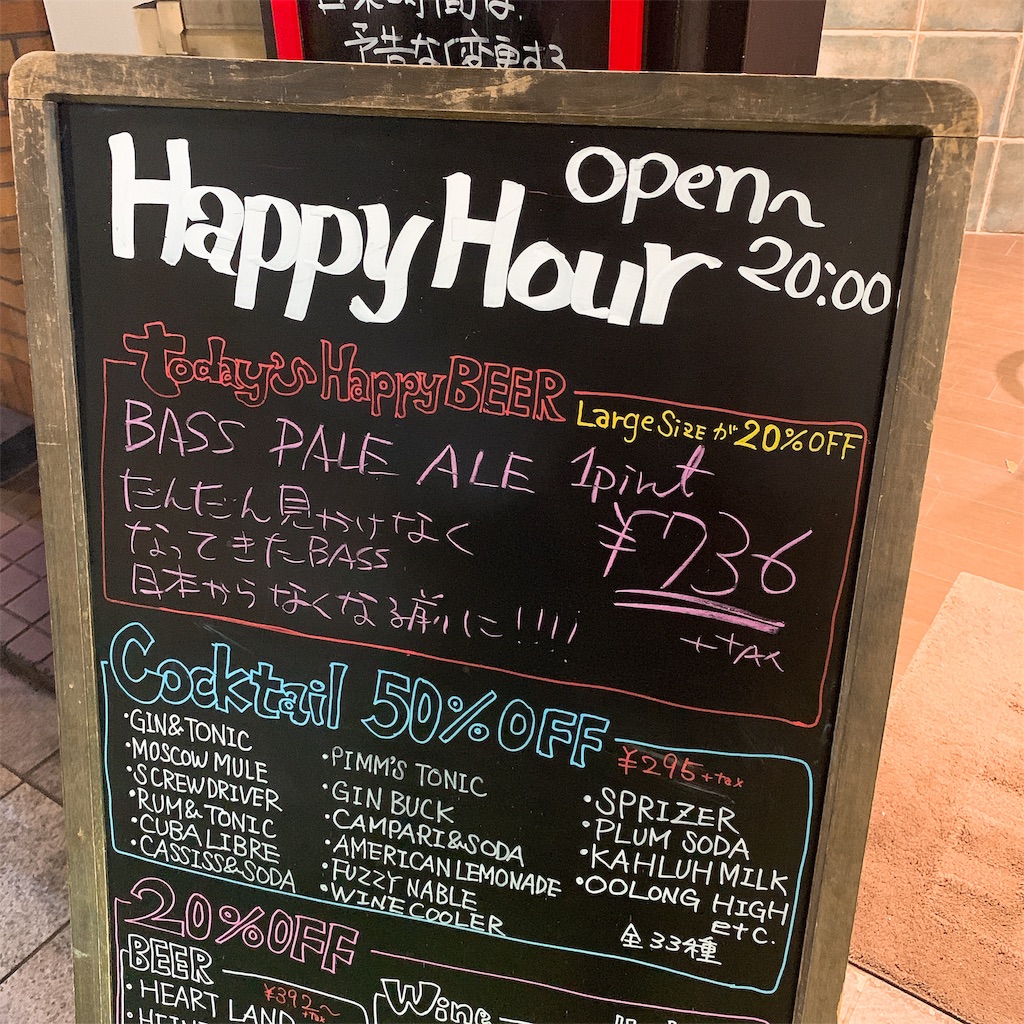 予告なく変更する
Happy Hour
Open~
20:00
Today's Happy BEER
Large Size が 20%OFF
BASS PALE ALE 1pint
だんだん見かけなく
なってきたBASS
日本からなくなる前に!!!!
¥736
+tax
Cocktail 50%OFF
¥295+tax
・GIN&TONIC
・MOSCOW MULE
・SCREWDRIVER
・RUM&TONIC
・CUBA LIBRE
・CASSISS&SODA
・PIMM'S TONIC
・GIN BUCK
・CAMPARI&SODA
・AMERICAN LEMONADE
・FUZZY NABLE
・WINE COOLER
・SPRIZER
・PLUM SODA
・KAHLUH MILK
・OOLONG HIGH
etc.
全33種
20%OFF
BEER
¥392~
+tax
・HEART LAND
Wine